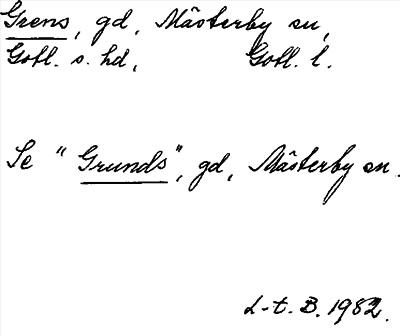 Grens, gd, Mästerby sn,
Gotl. s. hd, Gotl. l.
Se "Grunds", gd, Mästerby sn.
L-t. B. 1982.